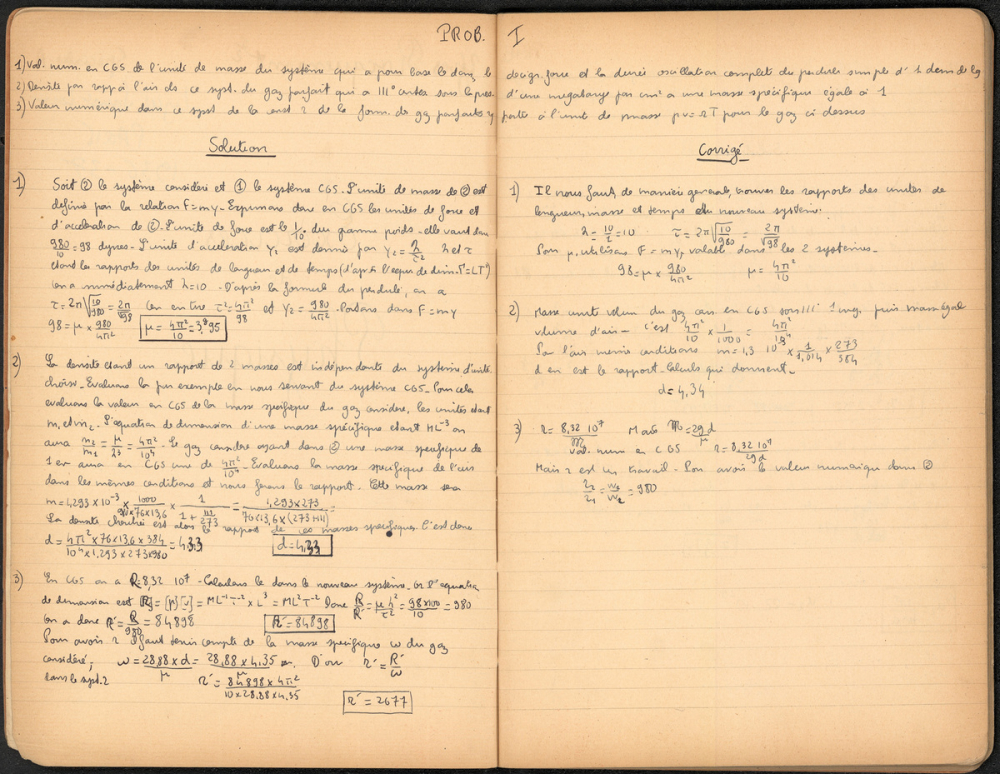 PROB. I
1) Val. num. en CGS de l'unité de masse du système qui a pour base le dong, le decigr. force et la durée oscillation complète du pendule simple d' 1 decm de lg
2) Densité par rapp à l'air ds ce syst. du gaz parfait qui a 111° centes sous la pres. d'une megabarye par cm² a une masse spécifique égale à 1
3) Valeur numérique dans ce syst de la const r de la form. de gaz parfaits rapportée à l'unit de masse pv = rT pour le gaz ci dessus
Solution
1) Soit ② le système considéré et ① le système CGS. L'unité de masse de ② est
définie par la relation F = mγ. Exprimons donc en CGS les unités de force et
d'accélération de ②. L'unité de force est le 1/10 du gramme poids - elle vaut donc
980/10 = 98 dynes. L'unité d'accélération γ₂ est donnée par γ₂ = λ/τ² λ et τ
étant les rapports des unités de longueur et de temps (d'après l'equa de dim. Γ = LT⁻²)
on a immédiatement λ = 10. D'après la formule du pendule, on a
τ = 2π√(10/980) = 2π/√98 on en tire τ² = 4π²/98 et γ₂ = 980/4π². Portons dans F = mγ
98 = μ × 980/4π² μ = 4π²/10 = 3,95
2) La densité étant un rapport de 2 masses est indépendante du système d'unité
choisi. Evaluons la par exemple en nous servant du système CGS. Pour cela
evaluons la valeur en CGS de la masse spécifique du gaz considéré, les unités étant
m₁ et m₂. L'équation de dimension d'une masse spécifique étant ML⁻³ on
aura m₂/m₁ = μ/λ³ = 4π²/10⁴. Le gaz considéré ayant dans ② une masse spécifique de
1 en aura en CGS une de 4π²/10⁴. Evaluons la masse spécifique de l'air
dans les mêmes conditions et nous ferons le rapport. Cette masse sera
m = 1,293 × 10⁻³ × 1000/980×76×13,6 × 1/1 + 111/273 = 1,293 × 273/76×13,6×(273+111)
La densité cherchée est alors le rapport de ces masses spécifiques. C'est donc
d = 4π² × 76 × 13,6 × 384/10⁴ × 1,293 × 273 × 980 = 4,33 d = 4,33
3) En CGS on a R = 8,32 10⁷. Calculons le dans le nouveau système. Or l'equation
de dimension est [R] = [p][v] = ML⁻¹T⁻² × L³ = ML²T⁻² Donc R/R' = μλ²/τ² = 98×100/10 = 980
on a donc R' = R/980 = 84898 R' = 84898
Pour avoir r il faut tenir compte de la masse spécifique ω du gaz
considéré, ω = 28,88 × d/μ = 28,88 × 4,35/μ D'où r' = R'/ω
dans le syst. 2 r' = 84898 × 4π²/10 × 28.88 × 4,35
r' = 2677
Corrigé
1) Il nous faut, de manière générale, trouver les rapports des unités de
longueurs, masse et temps du nouveau système.
λ = 10/2 = 10 τ = 2π√(10/980) = 2π/√98
Pour μ, utilisons F = mγ, valable dans les 2 systèmes.
98 = μ × 980/4π² μ = 4π²/10
2) Masse unité volum du gaz en CGS sous 111° 1 meg. puis masse égal
volume d'air - c'est 4π²/10 × 1/1000 = 4π²/10⁴
Pour l'air meme conditions m = 1,3 10⁻³ × 1/1,014 × 273/384
d en est le rapport. Calculs qui donnent.
d = 4,34
3) r = 8,32 10⁷/M Mais M = 29d/μ
Val. num en CGS r = 8,32 10⁷/29d
Mais r est un travail. Pour avoir la valeur numérique dans ②
r₂/r₁ = w₁/w₂ = 980